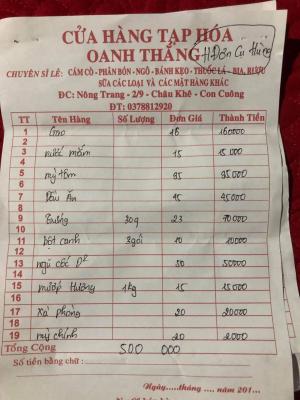 CỬA HÀNG TẠP HÓA
OANH THẮNG
HĐơn Cụ Hùng
CHUYÊN SỈ LẺ: CÁM CÒ - PHÂN BÓN - NGÔ - BÁNH KẸO - THUỐC LÁ - BIA, RƯỢU
SỮA CÁC LOẠI VÀ CÁC MẶT HÀNG KHÁC
ĐC: Nông Trang - 2/9 - Châu Khê - Con Cuông
ĐT: 0378812920
TT Tên Hàng Số Lượng Đơn Giá Thành Tiền
1 16 160000
2
3 nước mắm 15 15000
4
5 mỳ tôm 95 95000
6
7 Dầu Ăn 45 45000
8
9 30g 23 70000
10
11 bột canh 3gói 10 10000
12
13 ngũ cốc 50 50000
14
15 mướp Hương 1kg 15 15000
16
17 Xà phòng 20 20000
18
19 mỳ chính 20 2000
Tổng Cộng 500 000
Số tiền bằng chữ:
Ngày.....tháng .... năm 201...